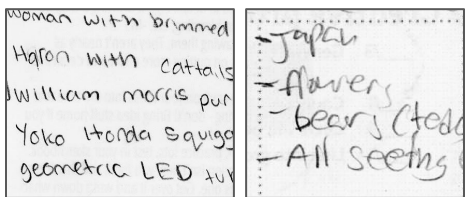 woman with brimmed
Haron with cattails
william morris pur
Yoko Honda Squigg
geometric LED tur
-Japan
-flowers
-bears (tedd
-All seeing